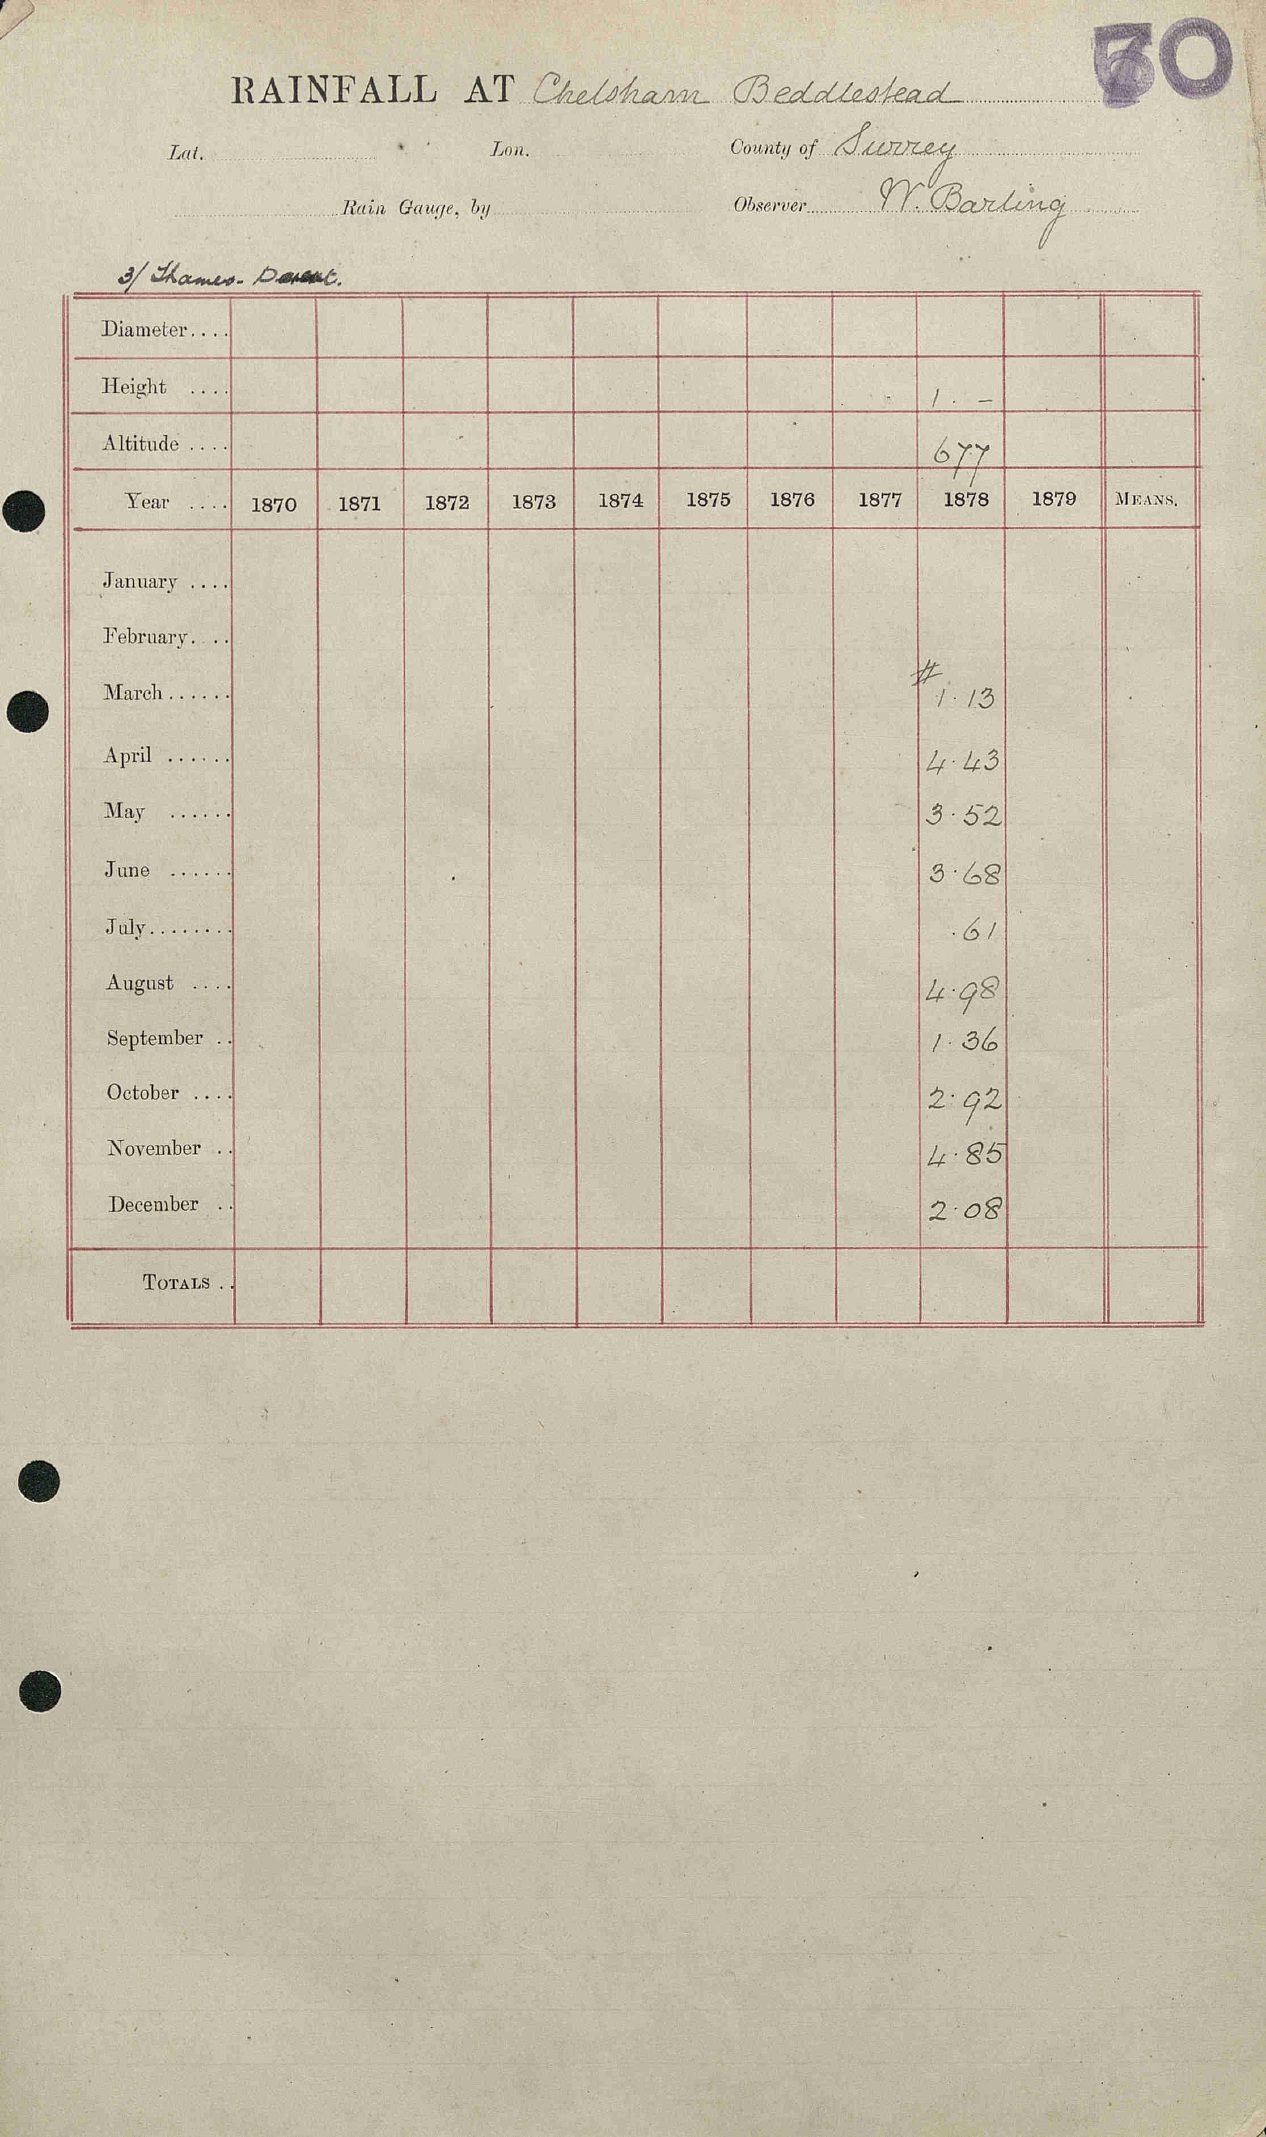 70
RAINFALL AT Chelsham Beddlestead
Lat. Lon. County of Surrey
Rain Gauge, by Observer W. Barling
3/ Thames-
Diameter....
Height .... 1. –
Altitude .... 677
Year .... 1870 1871 1872 1873 1874 1875 1876 1877 1878 1879 MEANS.
January ....
February....
#
March...... 1.13
April ...... 4.43
May ...... 3.52
June ...... 3.68
July........ .61
August .... 4.98
September .. 1.36
October .... 2.92
November .. 4.85
December .. 2.08
TOTALS ..